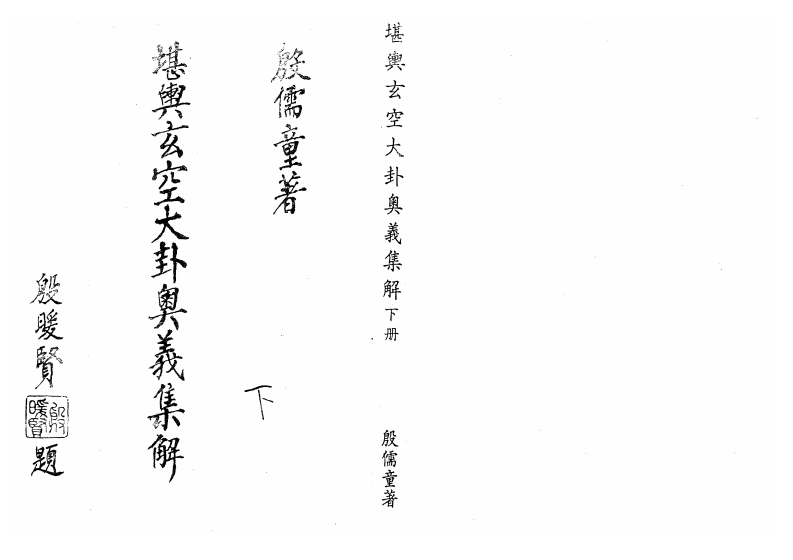 堪輿玄空大卦奧義集解下册
殷儒童著
殷儒童著
下
堪輿玄空大卦奧義集解
殷暖賢
殷暖賢
題